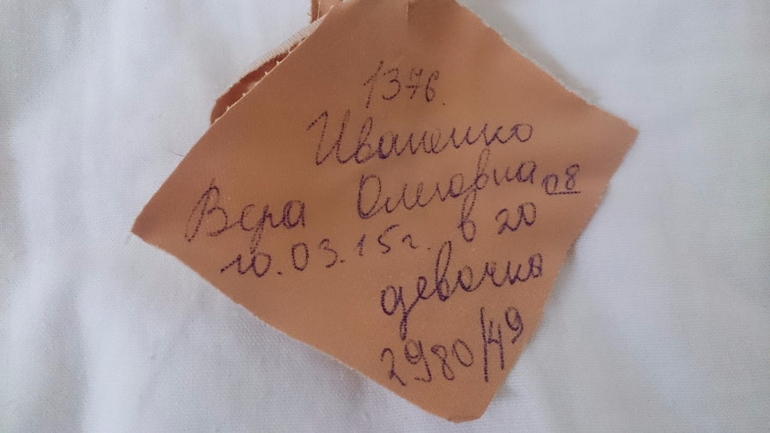 1376.
Иваненко
Вера Олеговна
10.03.15г. в 20 08
девочка
2980/49